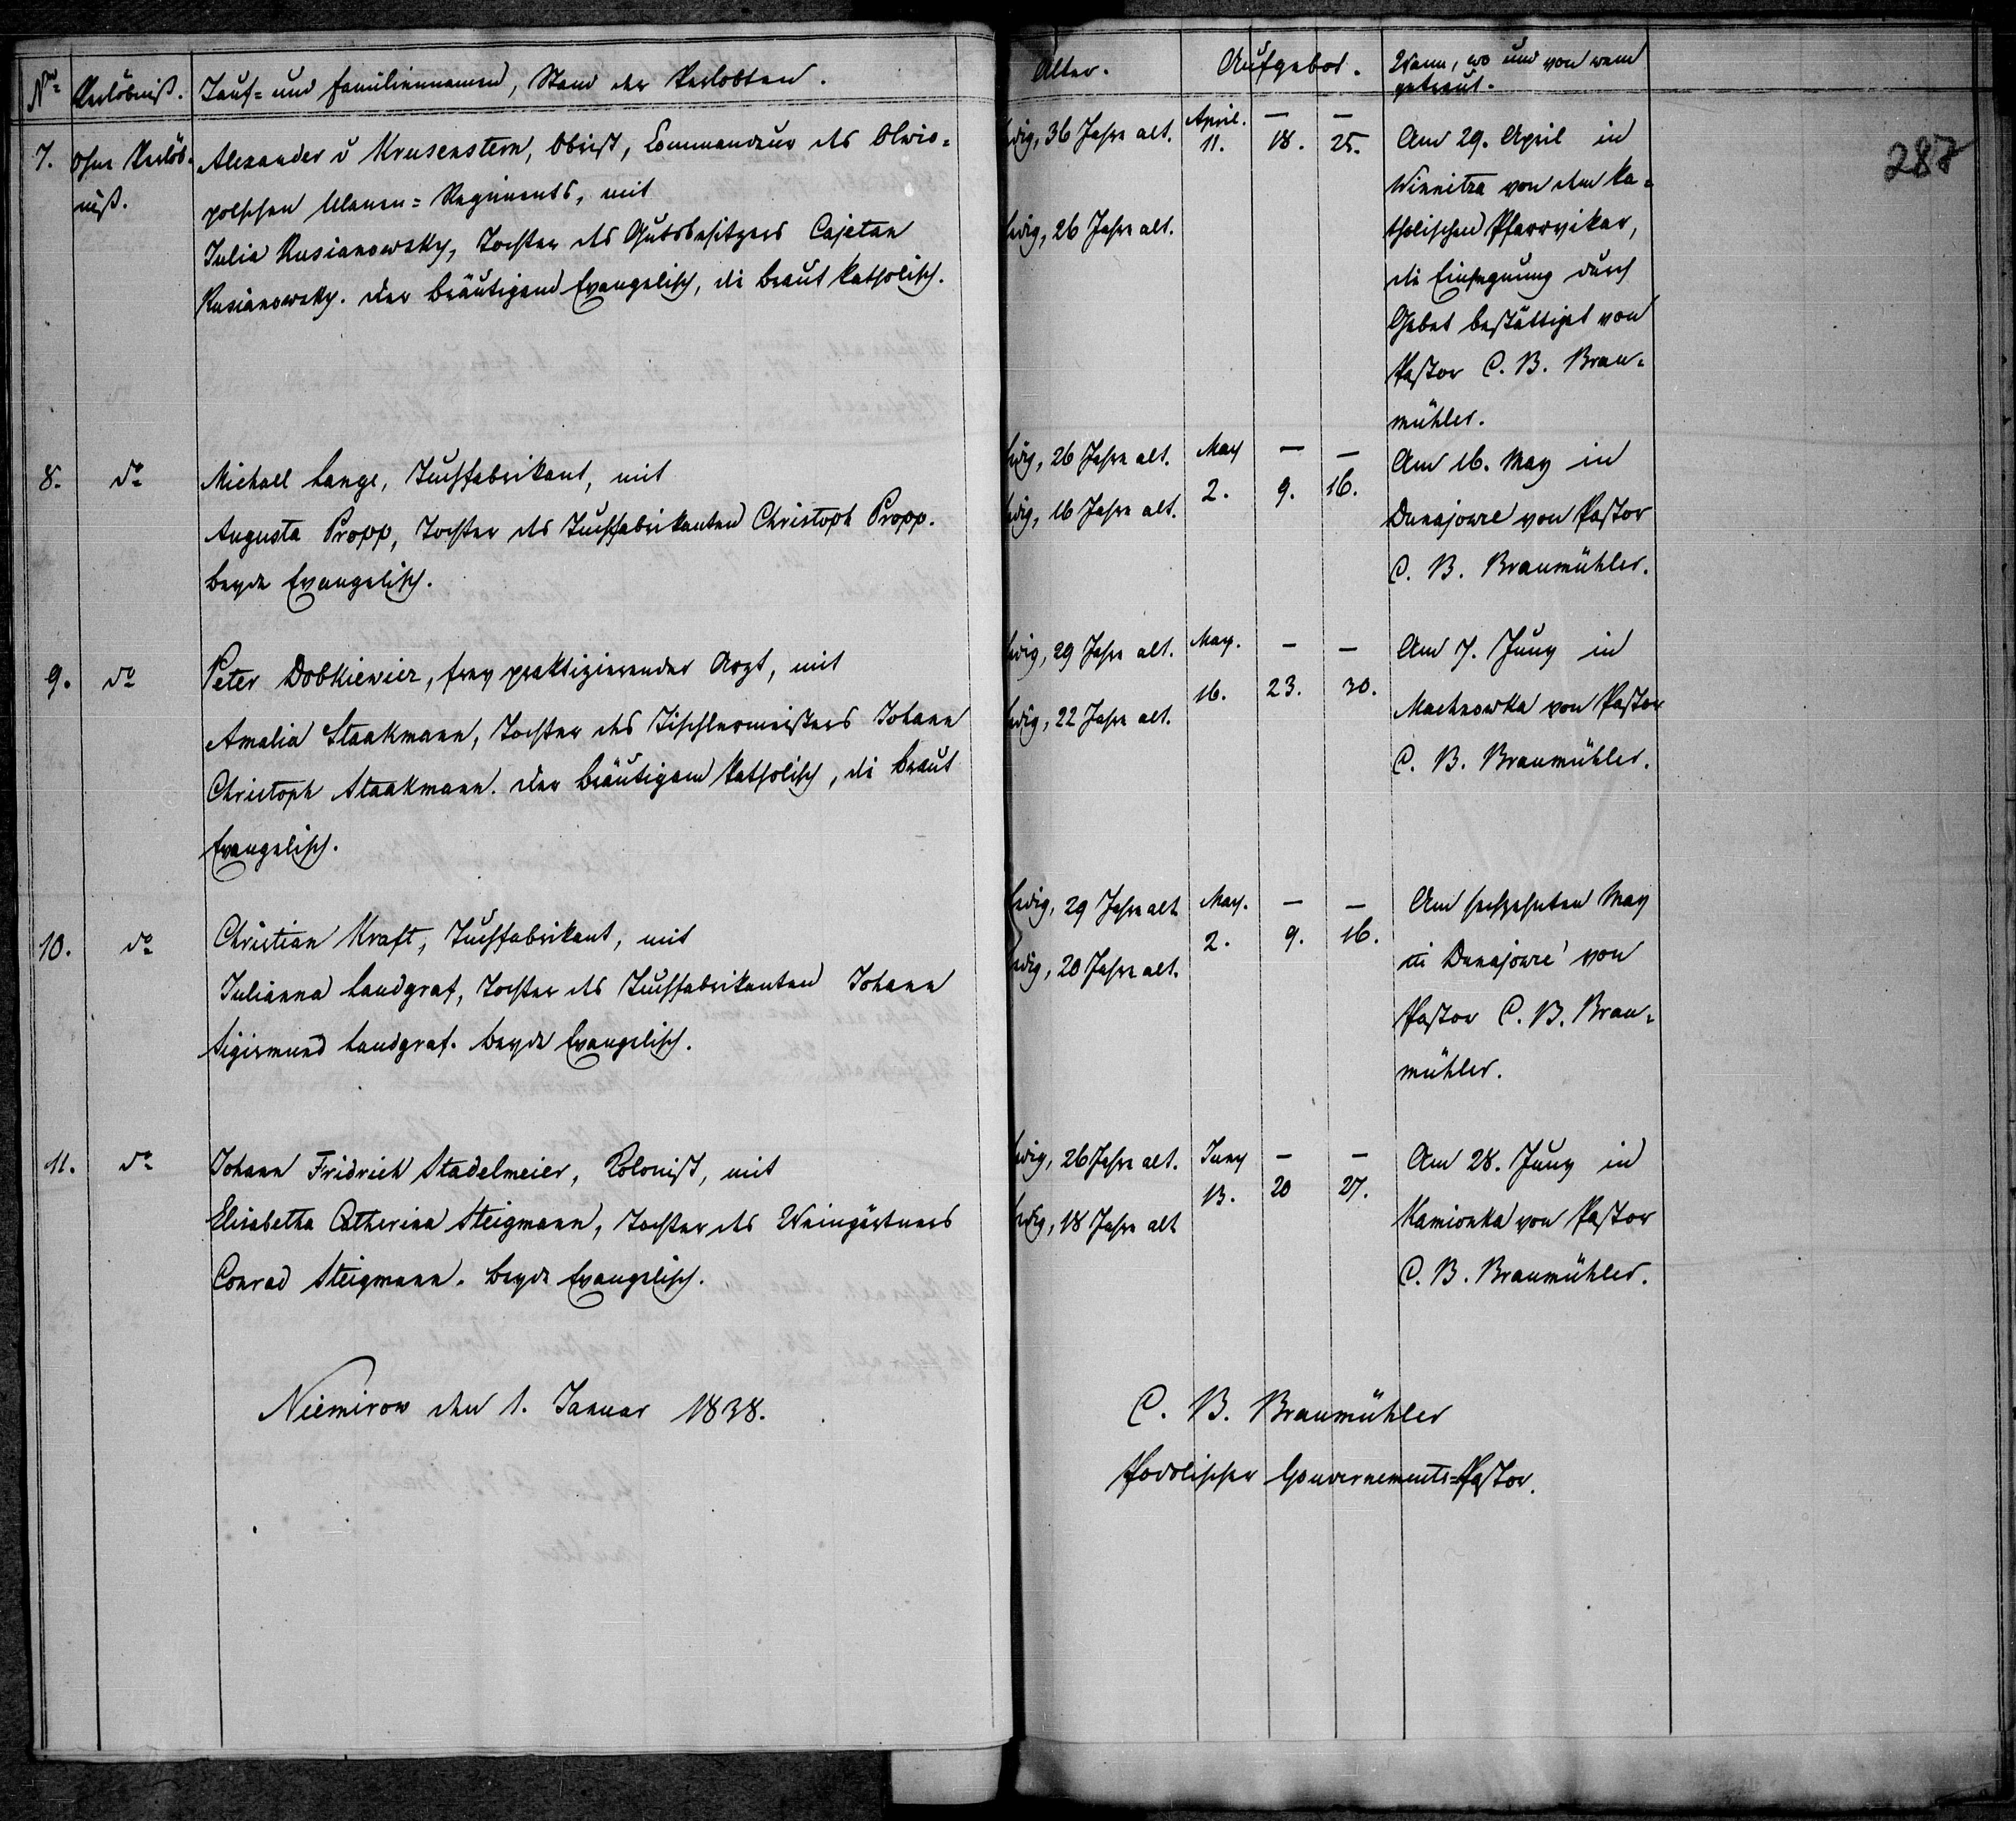 Nro
Verlöbniß.
Tauf- und Familiennamen, Stand der Verlobten.
Alter.
Aufgebot.
Wann, wo und von wem
getraut.
287
7.
Ohne Verlöb-
niß.
Alexander v Krusenstern, Obrist, Commandeur des Olwio-
polschen Ulanen-Regiments, mit
Julia Rusianowsky, Tochter des Gutsbesitzers Cajetan
Rusianowsky. Der Bräutigam Evangelisch, die Braut katholisch.
ledig, 36 Jahre alt.
ledig, 26 Jahre alt.
April. — —
11. 18. 25.
Am 29. April in
Winnitza von dem ka-
tholischen Pfarrvikar,
die Einsegnung durch
Gebet bestättigt von
Pastor C. B. Brau-
mühler.
8.
do
Michael Lange, Tuchfabrikant, mit
Augusta Propp, Tochter des Tuchfabrikanten Christoph Propp.
Beyde Evangelisch.
ledig, 26 Jahre alt.
ledig, 16 Jahre alt.
May — —
2. 9. 16.
Am 16. May in
Dunajowce von Pastor
C. B. Braumühler.
9.
do
Peter Dobkiewicz, frey praktizierender Arzt, mit
Amalia Staakmann, Tochter des Tischlermeisters Johann
Christoph Staakmann. Der Bräutigam katholisch, die Braut
Evangelisch.
ledig, 29 Jahre alt.
ledig, 22 Jahre alt.
May. — —
16. 23. 30.
Am 7. Juny in
Machnowka von Pastor
C. B. Braumühler.
10.
do
Christian Kraft, Tuchfabrikant, mit
Julianna Landgraf, Tochter des Tuchfabrikanten Johann
Sigismund Landgraf. Beyde Evangelisch.
ledig, 29 Jahre alt
ledig, 20 Jahre alt.
May. — —
2. 9. 16.
Am sechzehnten May
in Dunajowce von
Pastor C. B. Brau-
mühler.
11.
do
Johann Fridrich Stadelmeier, Kolonist, mit
Elisabetha Catherina Steigmann, Tochter des Weingärtners
Conrad Steigmann. Beyde Evangelisch.
ledig, 26 Jahre alt.
ledig, 18 Jahre alt
Juny — —
13. 20 27.
Am 28. Juny in
Kamionka von Pastor
C. B. Braumühler.
Niemirow den 1. Januar 1838.
C. B. Braumühler
Podolischer Gouvernements-Pastor.